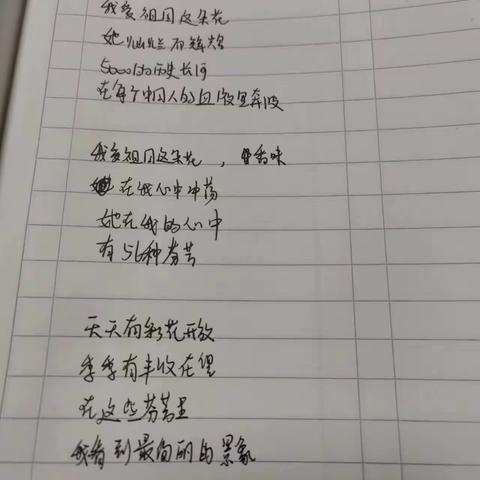 我爱祖国这朵花
她灿烂而辉煌
5000的历史长河
在每个中国人的血液里奔波
我爱祖国这朵花，香味
在我心中冲荡
她在我的心中
有56种芬芳
天天有彩花开放
季季有丰收在望
在这些芬芳里
我看到最美丽的景象